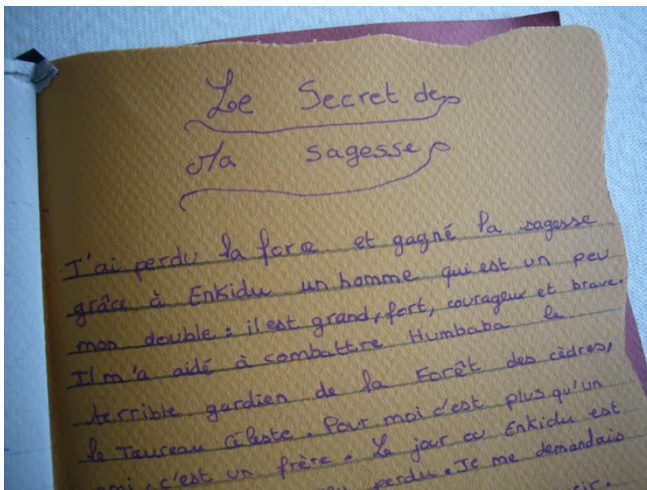 Le Secret de
Ma sagesse
J'ai perdu la force et gagné la sagesse
grâce à Enkidu un homme qui est un peu
mon double : il est grand, fort, courageux et brave.
Il m'a aidé à combattre Humbaba le
terrible gardien de la Forêt des cèdres,
le Taureau céleste. Pour moi c'est plus qu'un
ami, c'est un frère. Le jour ou Enkidu est
perdu. Je me demandais